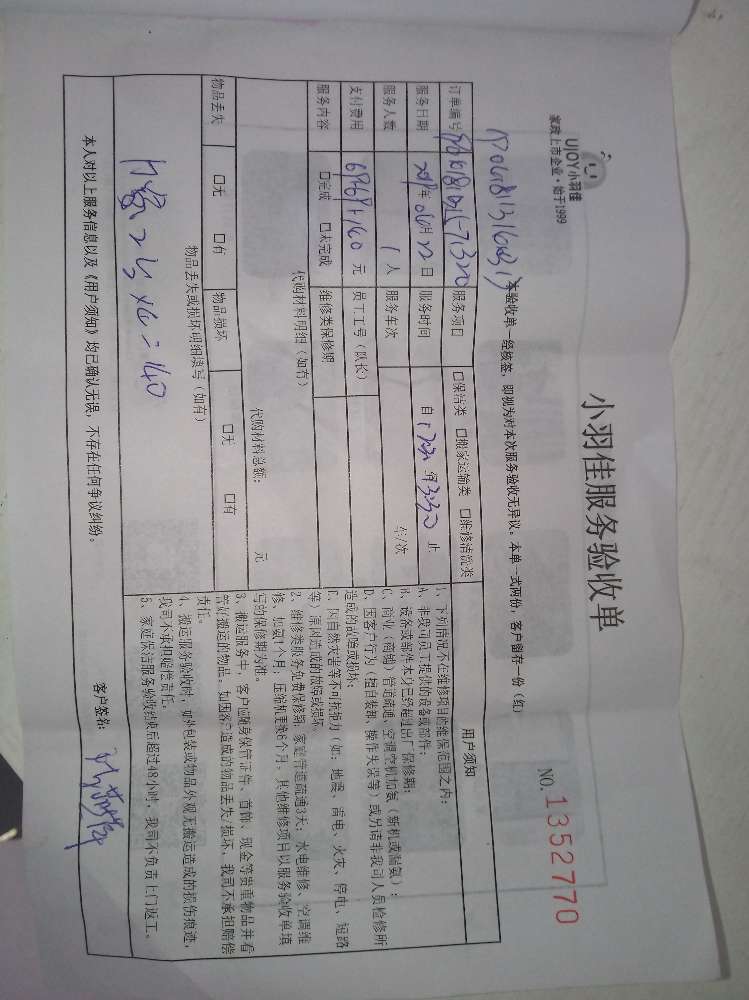 UJOY小羽佳
家政上市企业·始于1999
小羽佳服务验收单
NO. 1352770
本验收单一经核签，即视为对本次服务验收无异议。本单一式两份，客户留存一份（红）
订单编号
服务项目 □保洁类 □搬家运输类 □维修清洗类
服务日期 年 06月 22 日 服务时间 自 至 止
服务人数 1 人 服务车次 车/次
支付费用 元 员工工号（队长）
服务内容 □完成 □未完成 维修类保修期
代购材料明细（如有）
代购材料总额： 元
物品丢失 □无 □有 物品损坏 □无 □有
物品丢失或损坏明细填写（如有）
=140
用户须知
1、下列情况不在维修项目的维保范围之内：
A、非我司员工提供的设备或部件；
B、设备或部件本身已经超过出厂保修期；
C、商业（商铺）管道疏通、空调空机加氨（新机或漏氨）；
D、因客户行为（擅自装卸、操作失误等）或另请非我司人员检修所
造成的故障或损坏；
E、因自然灾害等不可抗拒力（如：地震、雷电、火灾、停电、短路
等）原因造成的故障或损坏。
2、维修类服务免费保修期：家庭管道疏通3天；水电维修、空调维
修、加氨1个月，压缩机更换6个月，其他维修项目以服务验收单填
写的保修期为准。
3、搬运服务中，客户应随身保管证件、首饰、现金等贵重物品并看
管好搬运的物品。如因客户造成的物品丢失/损坏，我司不承担赔偿
责任。
4、搬运服务验收时，如外包装或物品外观无搬运造成的损伤痕迹，
我司不承担赔偿责任。
5、家庭保洁服务验收结束后超过48小时，我司不负责上门返工。
本人对以上服务信息以及《用户须知》均已确认无误，不存在任何争议纠纷。
客户签名：